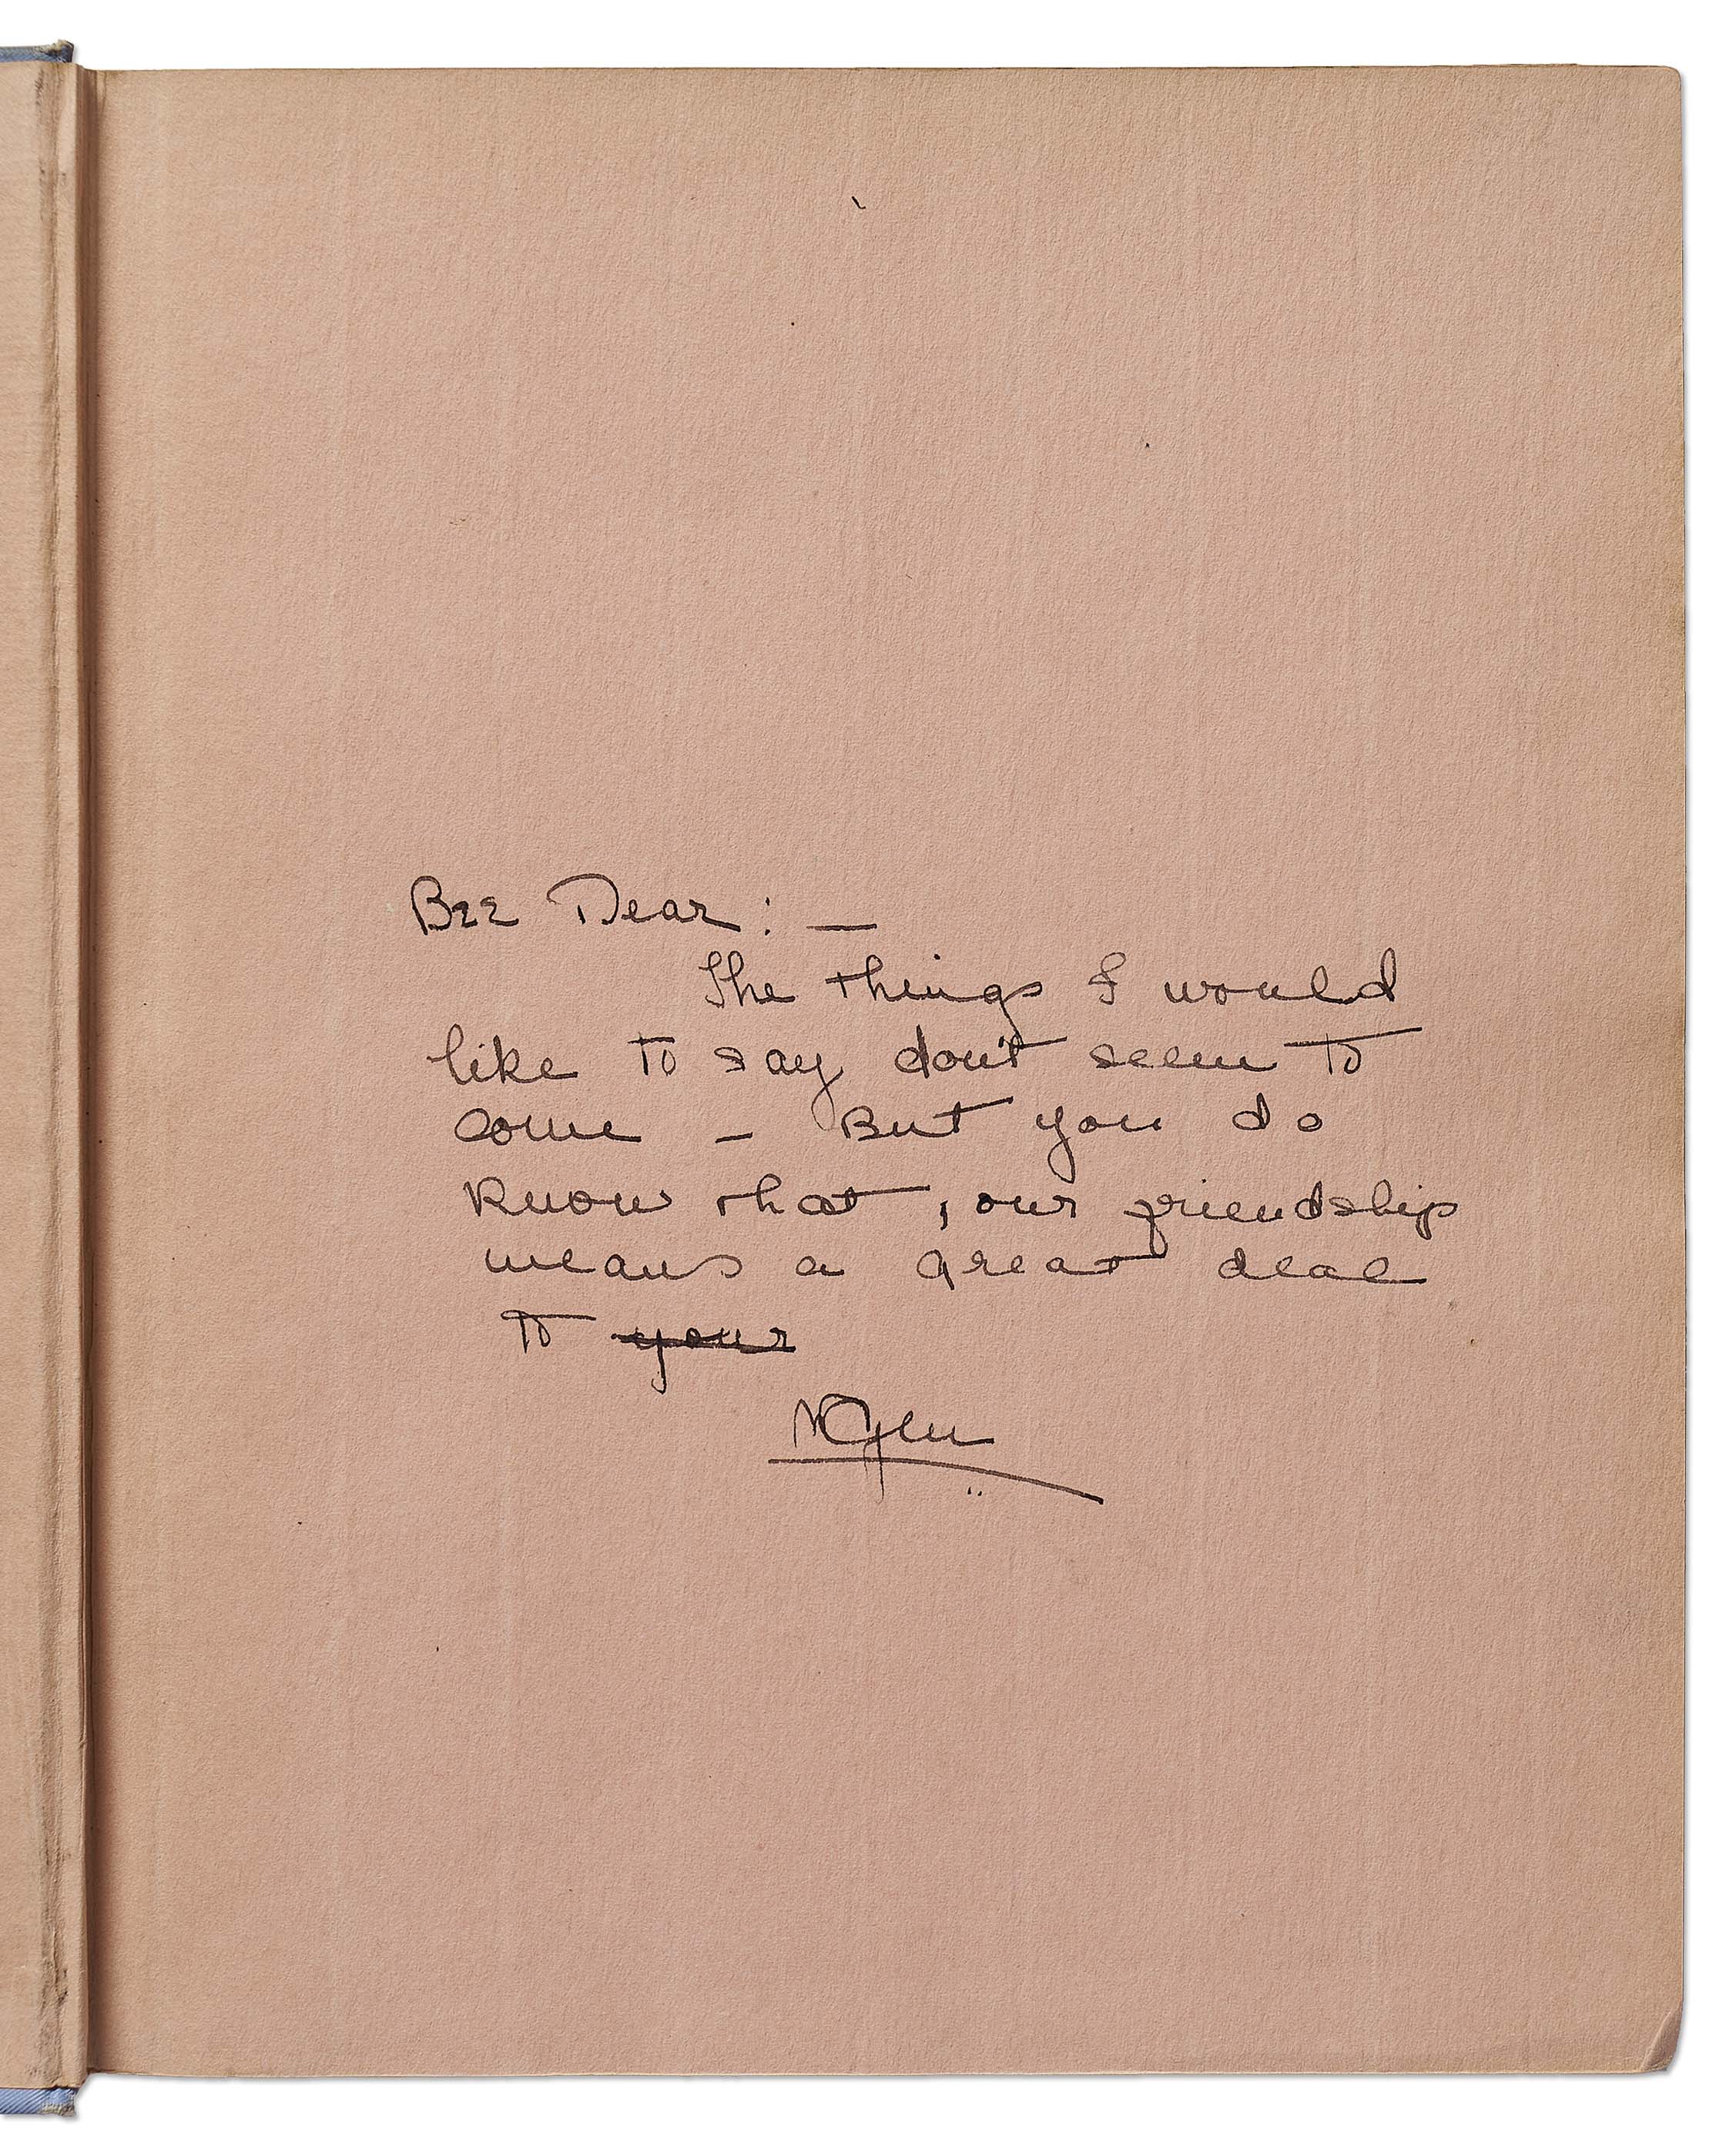 Bee Dear : —
The things I would
like to say don't seem to
come – But you do
know that, our friendship
means a great deal
to your